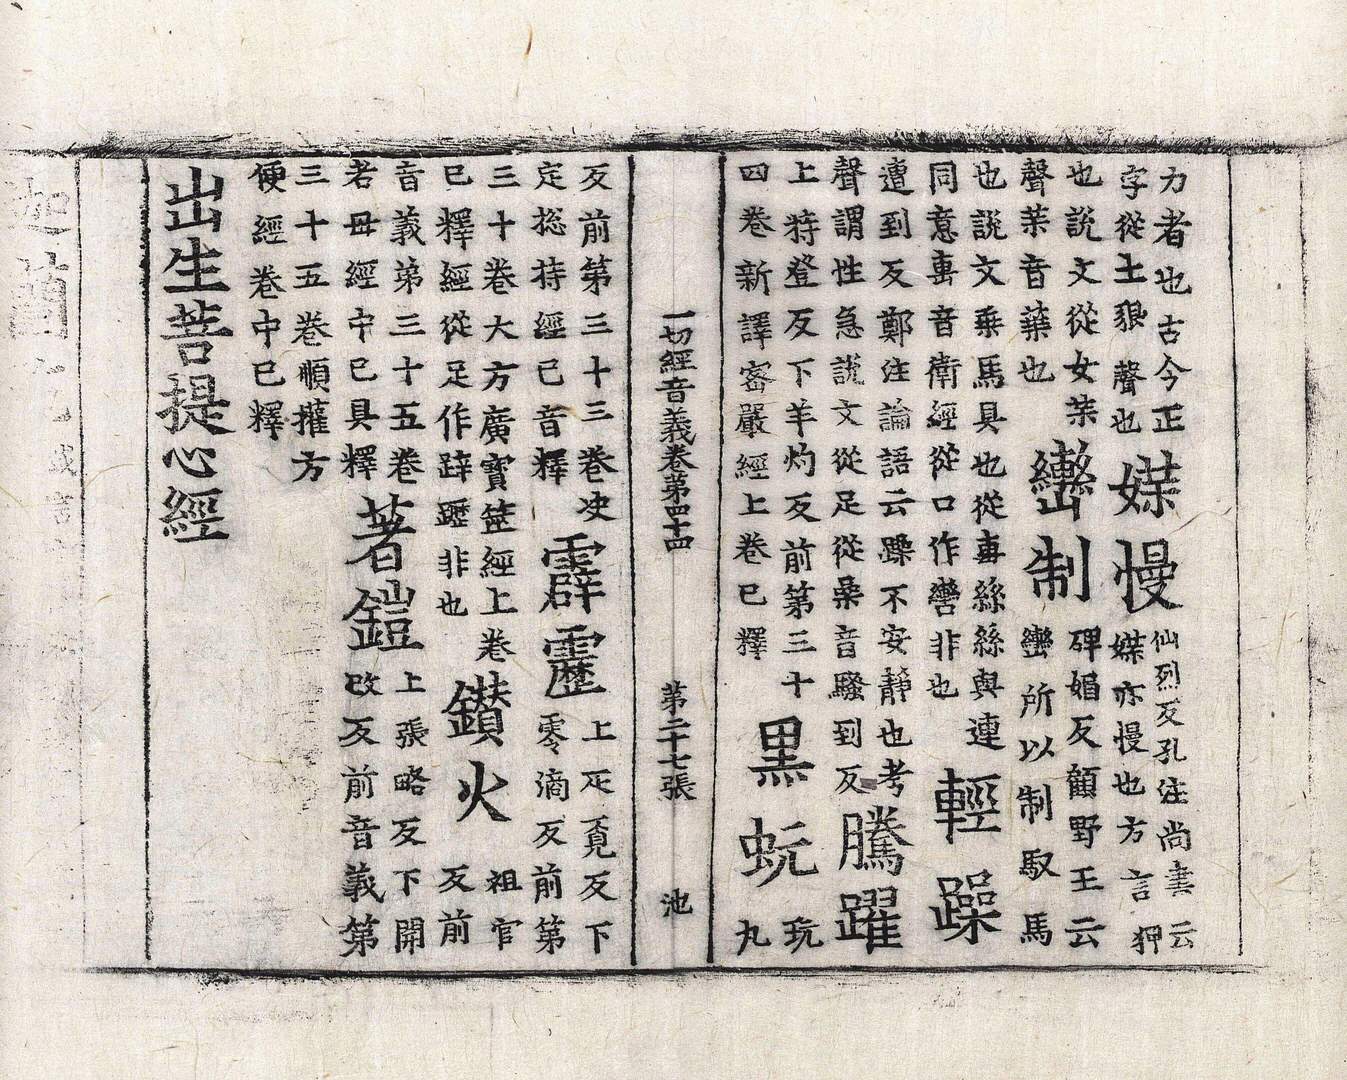 力者也古今正
字從土狠聲也
媟慢
仙烈反孔注尚書云
媟亦慢也方言狎
也說文從女枼
聲枼音葉也
轡制
碑媚反顧野王云
轡所以制馭馬
也說文乗馬具也從軎絲絲與連
同意軎音衛經從口作轡非也
輕躁
遭到反鄭注論語云躁不安靜也考
聲謂性急說文從足從喿音騷到反
騰躍
上特登反下羊灼反前第三十
四卷新譯密嚴經上卷已釋
黑蚖
玩
丸
一切經音義卷第四十四 第二十七張 池
反前第三十三卷决
定揔持經已音釋
霹靂
上疋覓反下
零滴反前第
三十卷大方廣寳篋經上卷
已釋經從足作躃躚非也
鑚火
祖官
反前
音義第三十五卷
若母經中已具釋
著鎧
上張略反下開
改反前音義第
三十五卷順攉方
便經卷中已釋
出生菩提心經